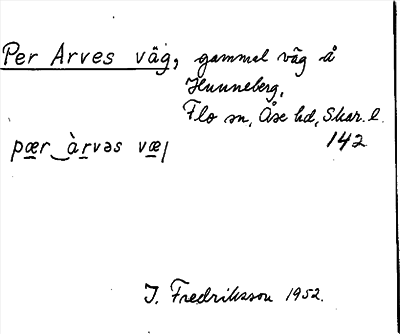 Per Arves väg, gammal väg å
Hunneberg,
Flo sn, Åse hd, Skar. l.
142
pær àrvəs væ,
I. Fredriksson 1952.